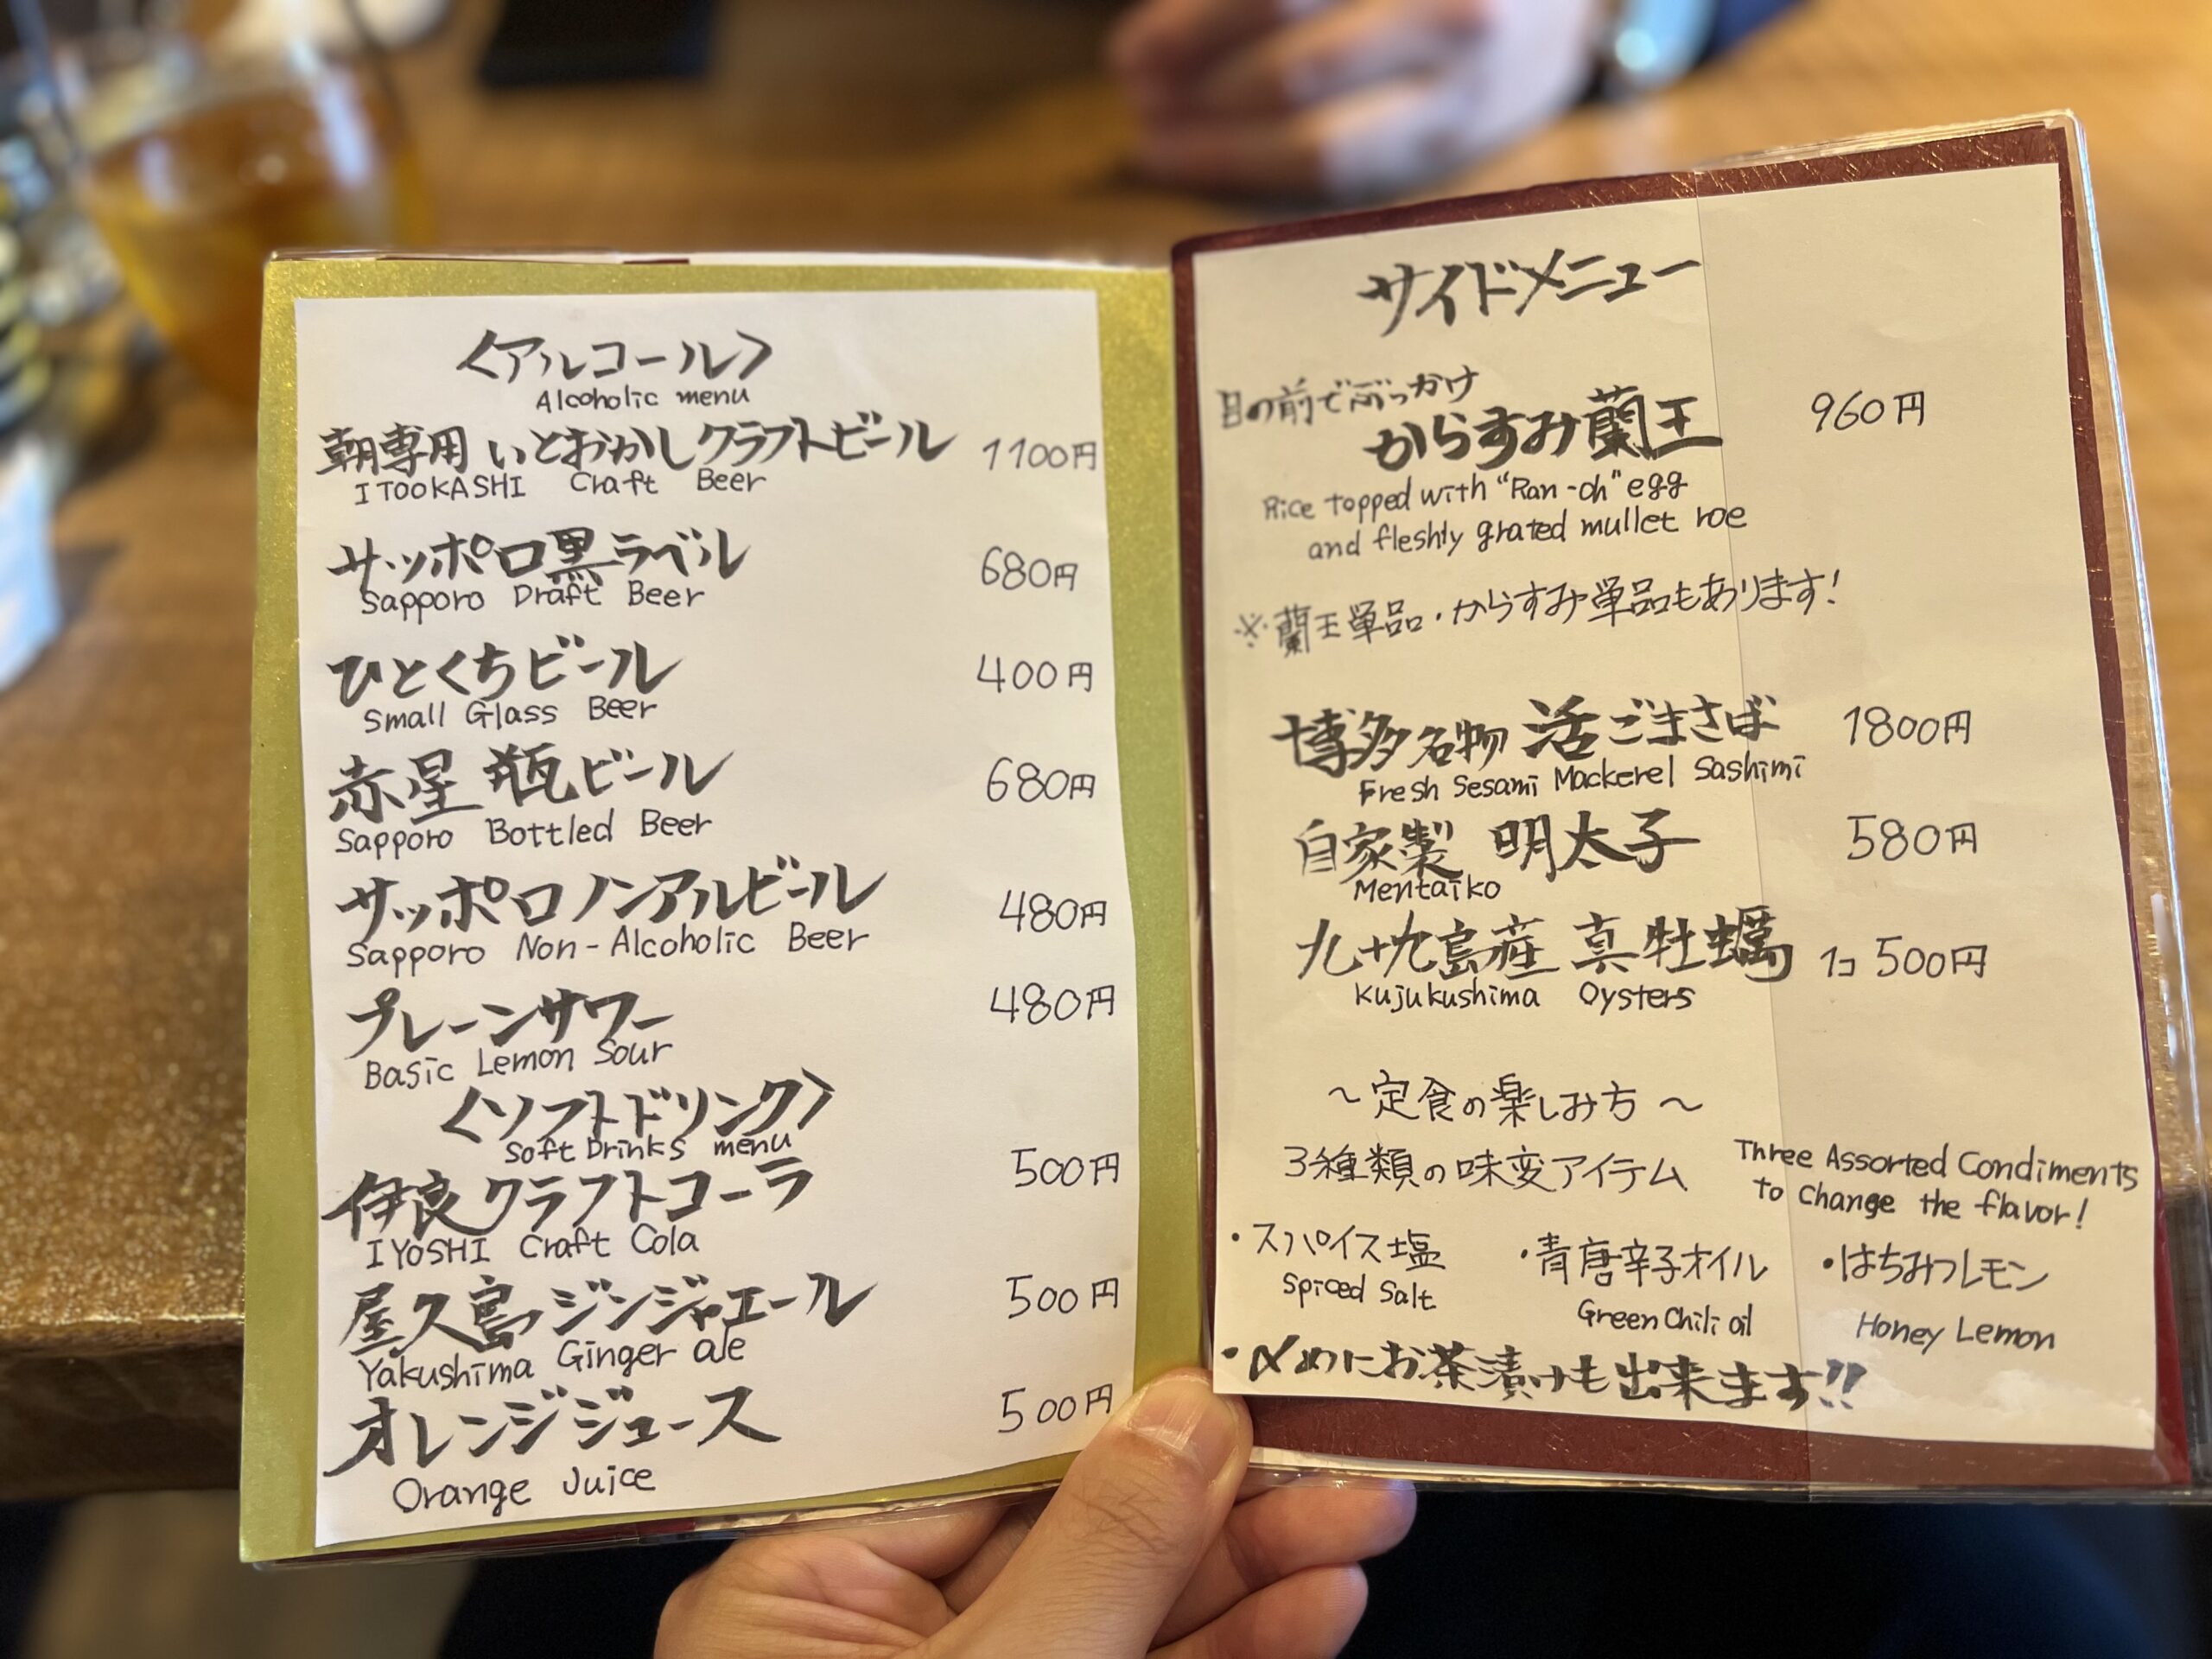 〈アルコール〉
Alcoholic menu
朝専用 いとおかしクラフトビール 1100円
ITOOKASHI Craft Beer
サッポロ黒ラベル 680円
Sapporo Draft Beer
ひとくちビール 400円
Small Glass Beer
赤星 瓶ビール 680円
Sapporo Bottled Beer
サッポロノンアルビール 480円
Sapporo Non-Alcoholic Beer
プレーンサワー 480円
Basic Lemon Sour
〈ソフトドリンク〉
Soft Drinks menu
伊良クラフトコーラ 500円
IYOSHI Craft Cola
屋久島ジンジャエール 500円
Yakushima Ginger ale
オレンジジュース 500円
Orange Juice
サイドメニュー
目の前でぶっかけ
からすみ蘭王 960円
Rice topped with "Ran-oh" egg
and fleshly grated mullet roe
※蘭王単品・からすみ単品もあります!
博多名物 活ごまさば 1800円
Fresh Sesami Mackerel Sashimi
自家製 明太子 580円
Mentaiko
九十九島産 真牡蠣 1コ 500円
Kujukushima Oysters
～定食の楽しみ方～
3種類の味変アイテム Three Assorted Condiments
to Change the flavor!
・スパイス塩 ・青唐辛子オイル ・はちみつレモン
Spiced Salt Green Chili oil Honey Lemon
・〆めにお茶漬けも出来ます!!